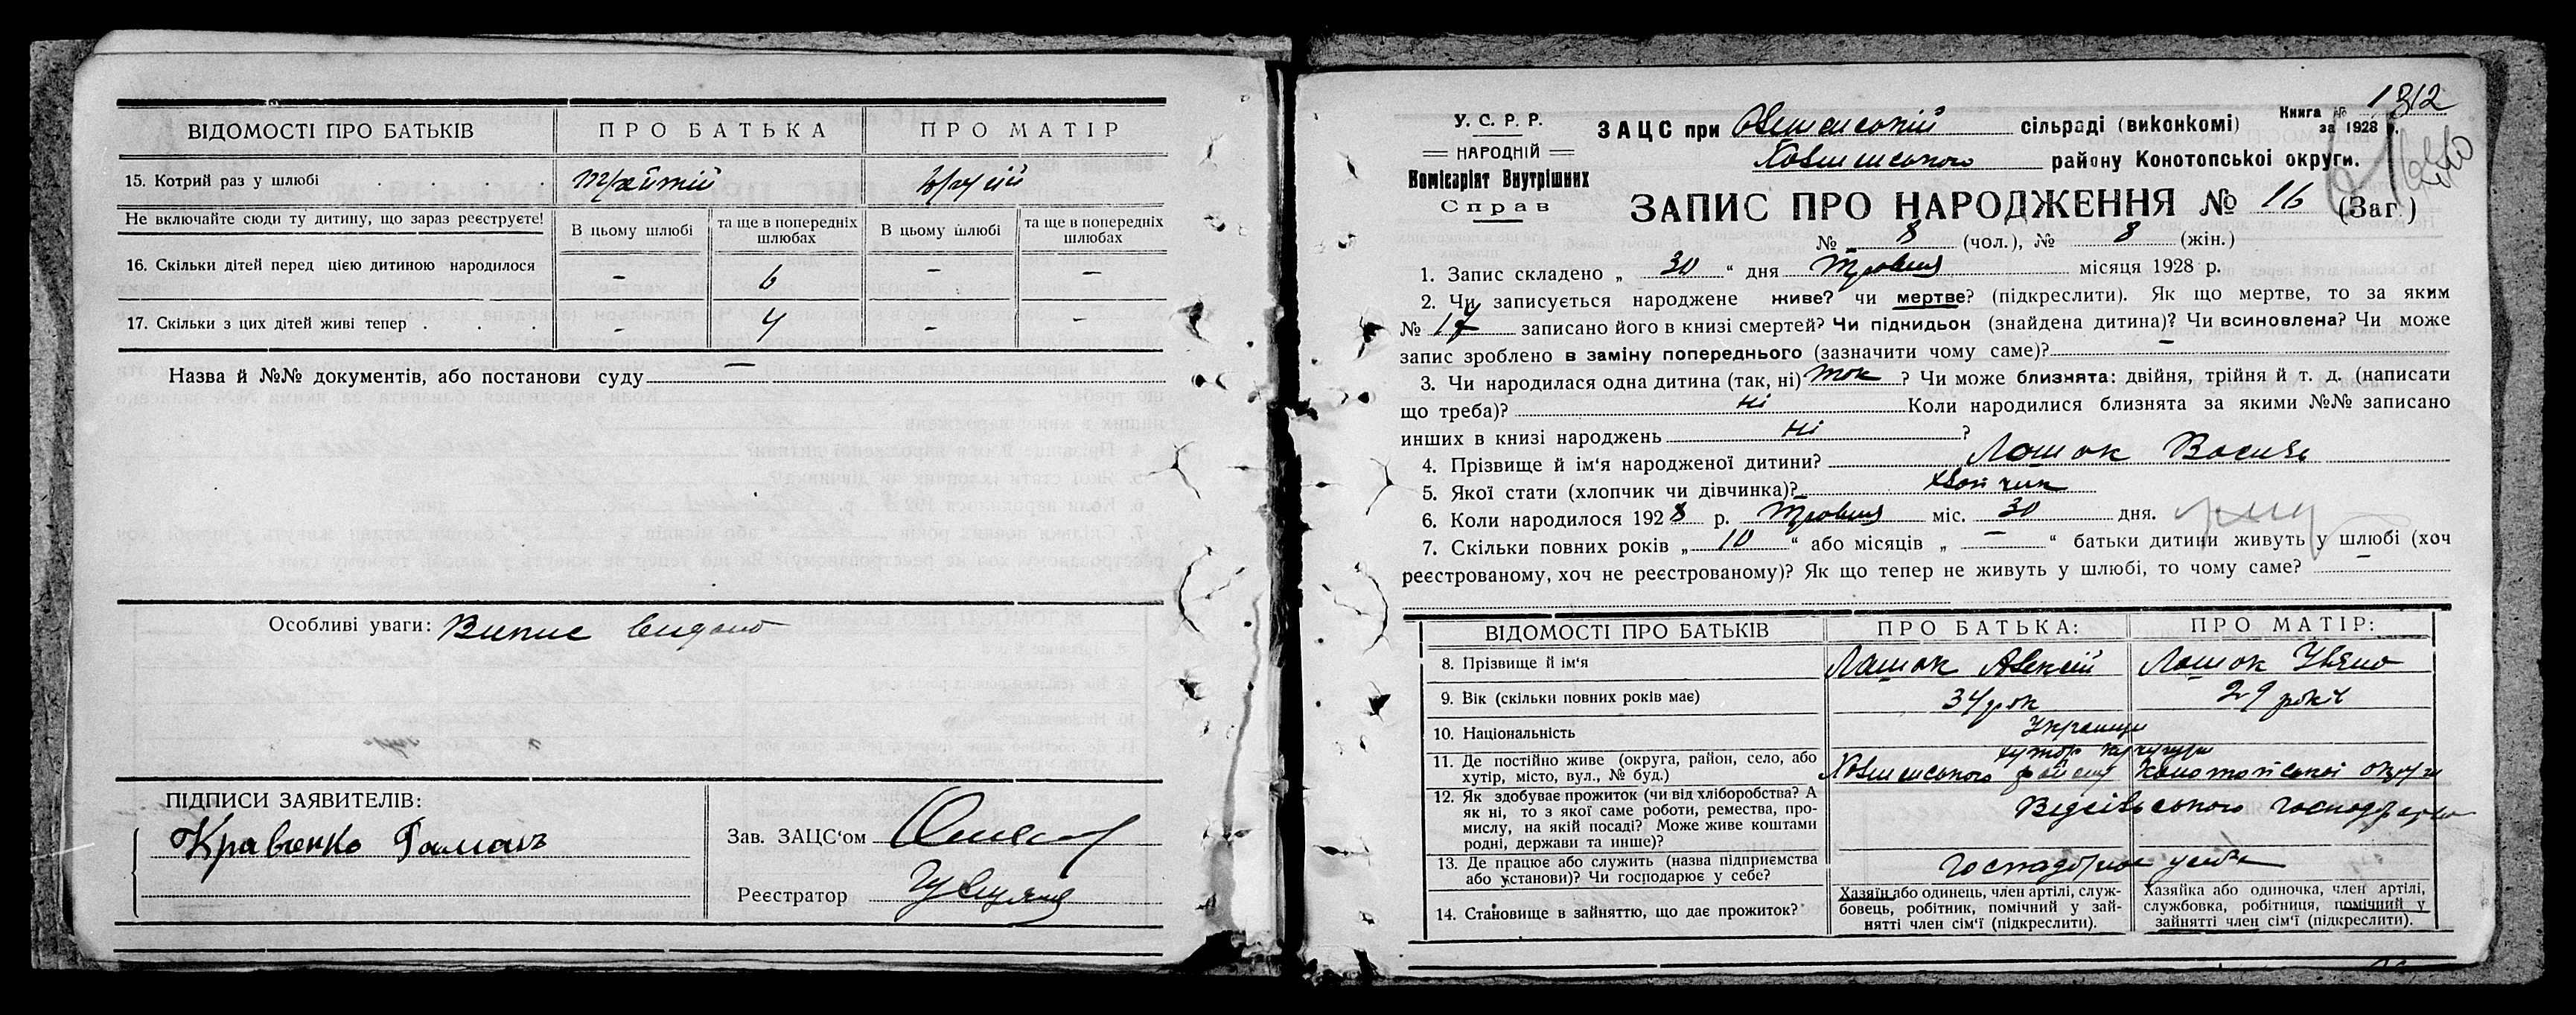 ВІДОМОСТІ ПРО БАТЬКІВ ПРО БАТЬКА ПРО МАТІР
15. Котрий раз у шлюбі . . . . третій
Не включайте сюди ту дитину, що зараз реєструєте! В цьому шлюбі та ще в попередніх шлюбах В цьому шлюбі та ще в попередніх шлюбах
16. Скільки дітей перед цією дитиною народилося – 6 – –
17. Скільки з цих дітей живі тепер . . . – 4 – –
Назва й №№ документів, або постанови суду –
Особливі уваги: Випис видано
ПІДПИСИ ЗАЯВИТЕЛІВ:
Кравченко
Зав. ЗАЦС‘ом
Реєстратор
1312
У. С. Р. Р.
НАРОДНІЙ
Комісаріят Внутрішних
Справ
Книга №
за 1928 р.
ЗАЦС при сільраді (виконкомі)
району Конотопської округи.
ЗАПИС ПРО НАРОДЖЕННЯ № 16 (Заг.)
№ 8 (чол.), № 8 (жін.)
1. Запис складено „ 30 “ дня Травня місяця 1928 р.
2. Чи записується народжене живе? чи мертве? (підкреслити). Як що мертве, то за яким
№ 17 записано його в книзі смертей? Чи підкидьок (знайдена дитина)? Чи всиновлена? Чи може
запис зроблено в заміну попереднього (зазначити чому саме)? –
3. Чи народилася одна дитина (так, ні) так ? Чи може близнята: двійня, трійня й т. д. (написати
що треба)? ні Коли народилися близнята за якими №№ записано
инших в книзі народжень ні ?
4. Прізвище й ім‘я народженої дитини? Лашок Василь
5. Якої стати (хлопчик чи дівчинка)? хлопчик
6. Коли народилося 1928 р. Травня міс. 30 дня.
7. Скільки повних років „ 10 “ або місяців „ – “ батьки дитини живуть у шлюбі (хоч
реєстрованому, хоч не реєстрованому)? Як що тепер не живуть у шлюбі, то чому саме? –
ВІДОМОСТІ ПРО БАТЬКІВ ПРО БАТЬКА: ПРО МАТІР:
8. Прізвище й ім‘я Лашок Алексій Лашок Уляна
9. Вік (скільки повних років має) 34 рок 29 років
10. Національність Українці
11. Де постійно живе (округа, район, село, або хутір, місто, вул., № буд.) хутор району Конотопської округи
12. Як здобуває прожиток (чи від хліборобства? А як ні, то з якої саме роботи, ремества, промислу, на якій посаді? Може живе коштами родні, держави та инше)? Від сільського господарства
13. Де працює або служить (назва підприємства або установи)? Чи господарює у себе? Господарює у себе
14. Становище в зайняттю, що дає прожиток? Хазяїн або одинець, член артілі, службовець, робітник, помічний у зайнятті член сім‘ї (підкреслити). Хазяйка або одиночка, член артілі, службовка, робітниця, помічний у зайнятті член сім‘ї (підкреслити).